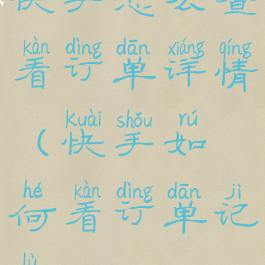 快手怎么查
kàn dìng dān xiáng qíng
看订单详情
kuài shǒu rú
（快手如
hé kàn dìng dān jì
何看订单记
lù